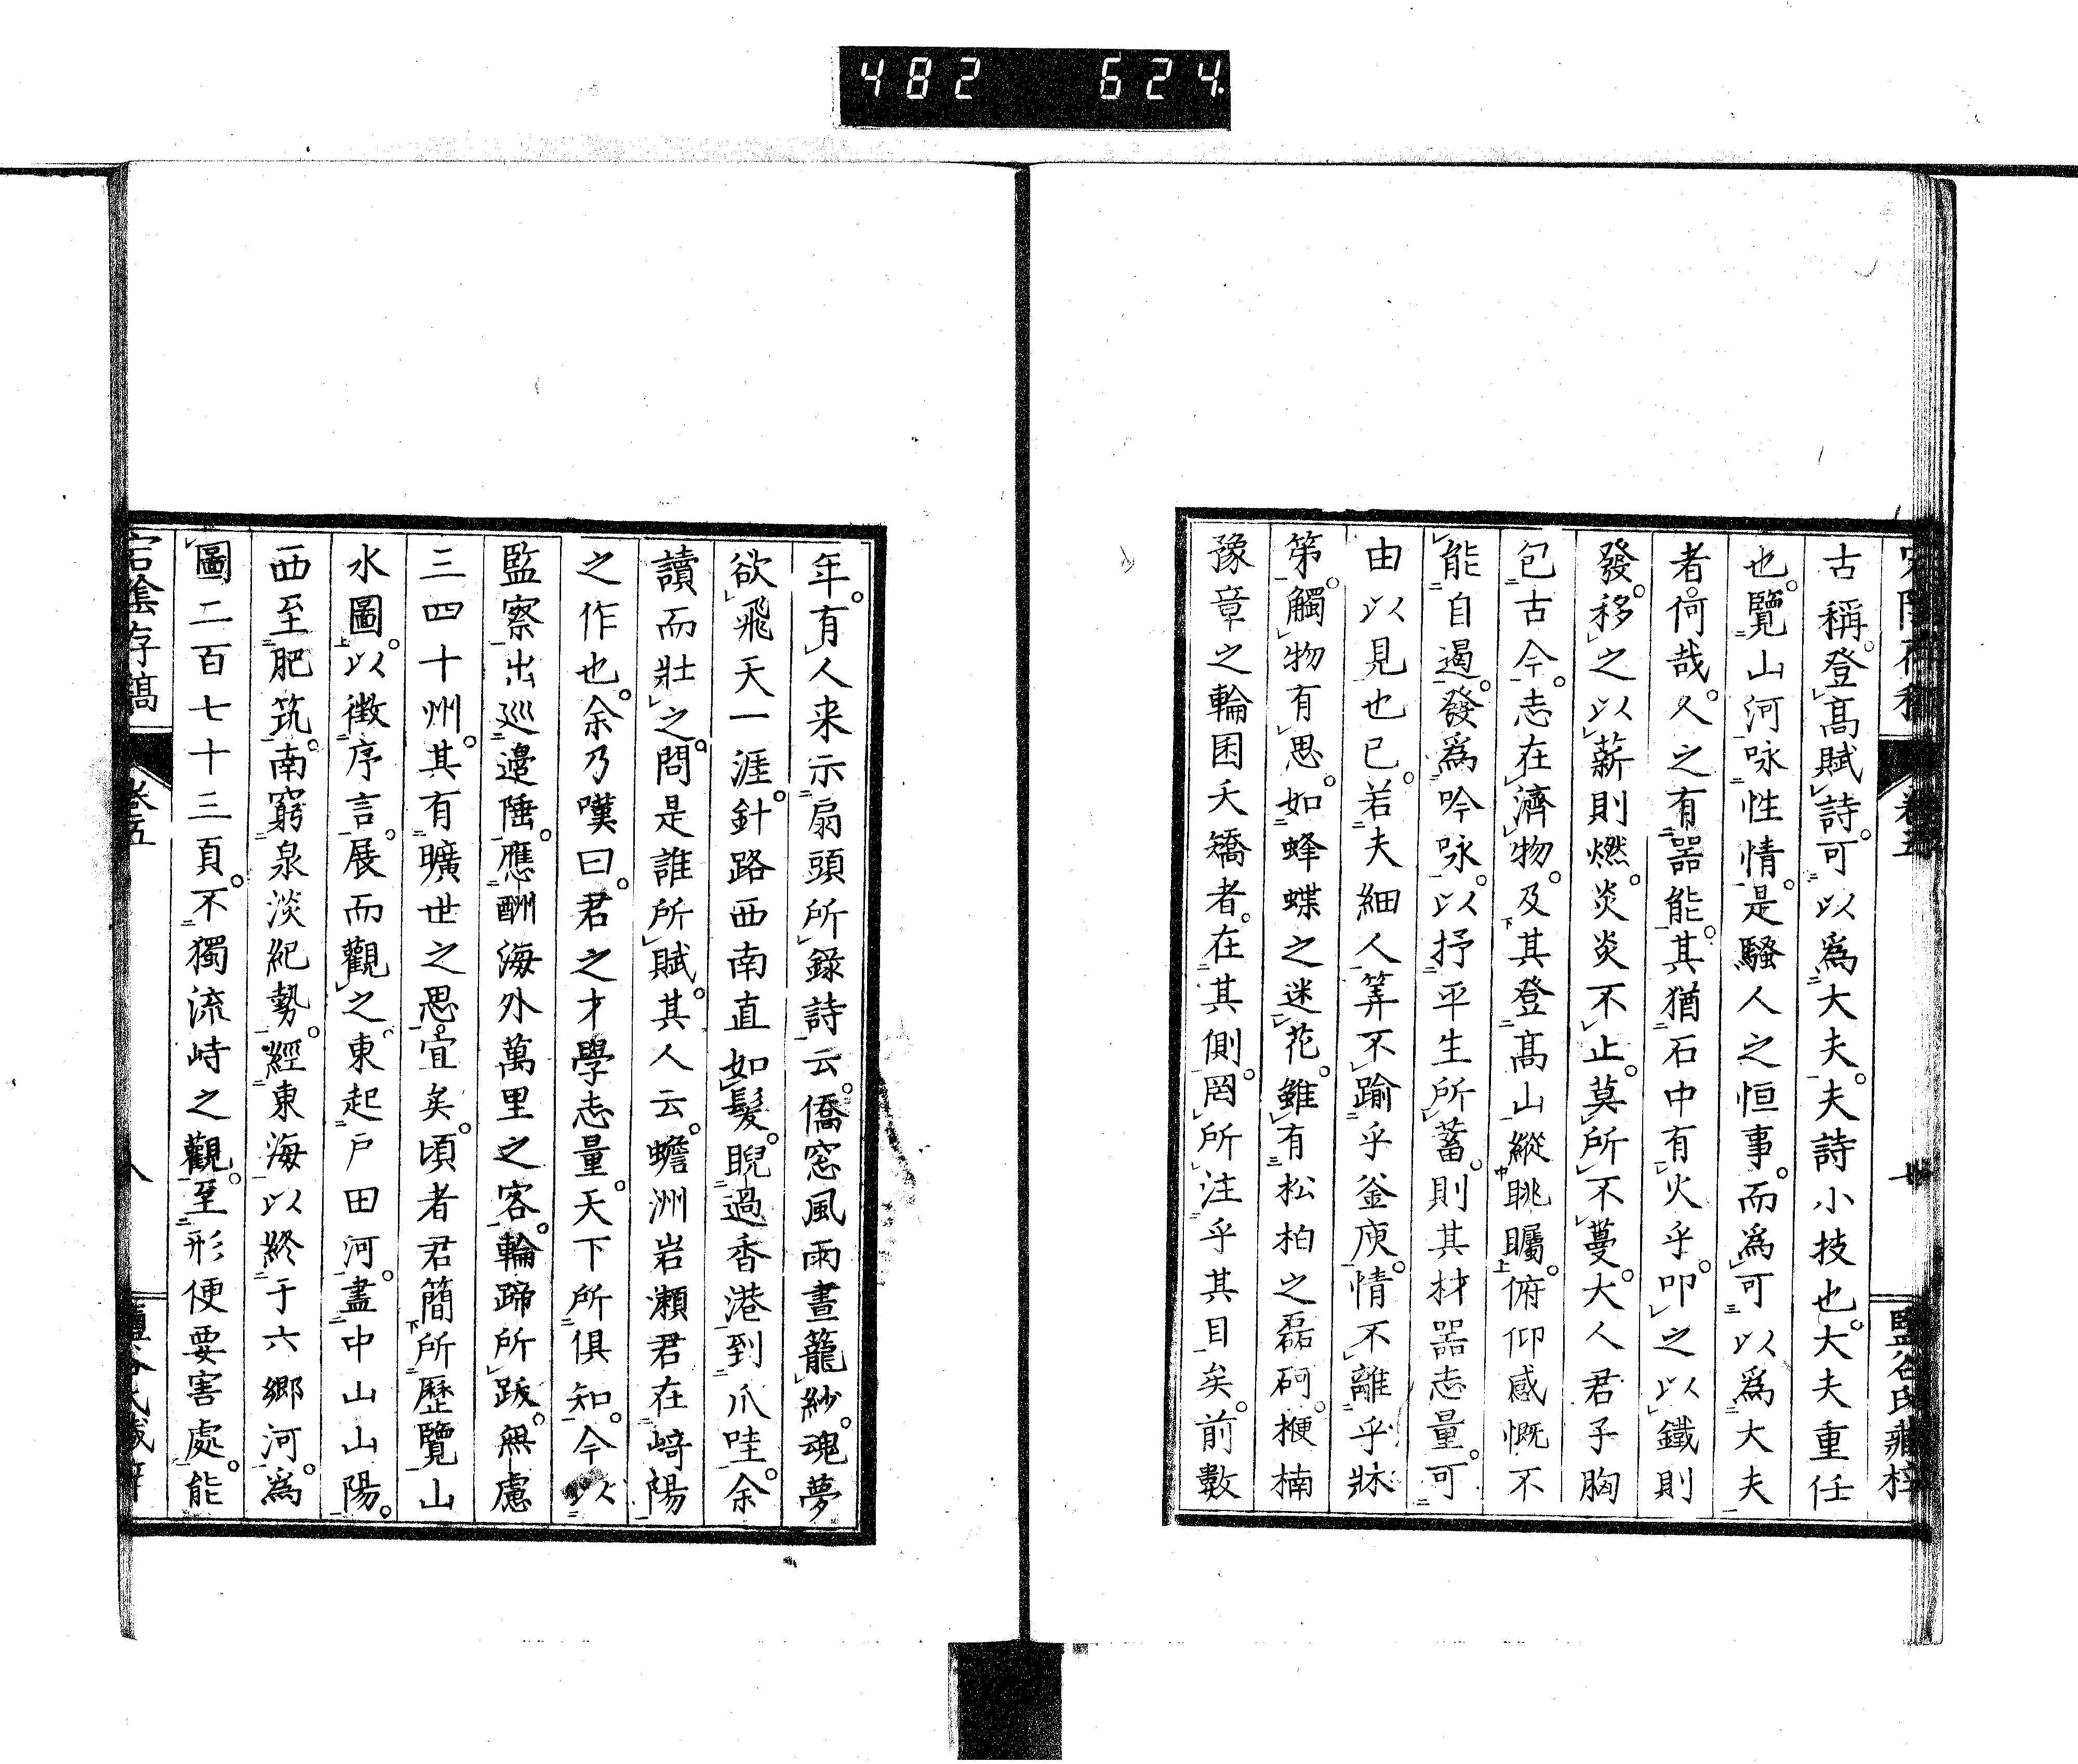 482 624
古稱。登高賦詩。可以爲大夫。夫詩小技也。大夫重任
也。覽山河。咏性情。是騷人之恒事。而爲可以爲大夫
者何哉。人之有器能。其猶石中有火乎。叩之以鐵則
發。移之以薪則燃。炎炎不止。莫所不蔓。大人君子胸
包古今。志在濟物。及其登高山縱眺矚。俯仰感慨不
能自遏。發爲吟咏。以抒平生所蓄。則其材器志量。可
由以見也已。若夫細人筭不踰乎釜庾。情不離乎牀
第。觸物有思。如蜂蝶之迷花。雖有松柏之磊砢。楩楠
豫章之輪囷夭矯者。在其側。罔所注乎其目矣。前數
年。有人来示扇頭所錄詩云。僑窓風雨晝籠紗。魂夢
欲飛天一涯。針路西南直如髮。睨過香港到爪哇。余
讀而壯之。問是誰所賦。其人云。蟾洲岩瀬君在﨑陽
之作也。余乃嘆曰。君之才學志量。天下所俱知。今以
監察出巡邉陲。應酬海外萬里之客。輪蹄所跋。無慮
三四十州。其有曠世之思。宜矣。頃者君簡所歷覽山
水圖。以徴序言。展而觀之。東起戶田河。盡中山山陽。
西至肥筑。南窮泉淡紀勢。經東海以終于六郷河。爲
圖二百七十三頁。不獨流峙之觀。至形便要害處。能
宕陰存稿 卷五 八